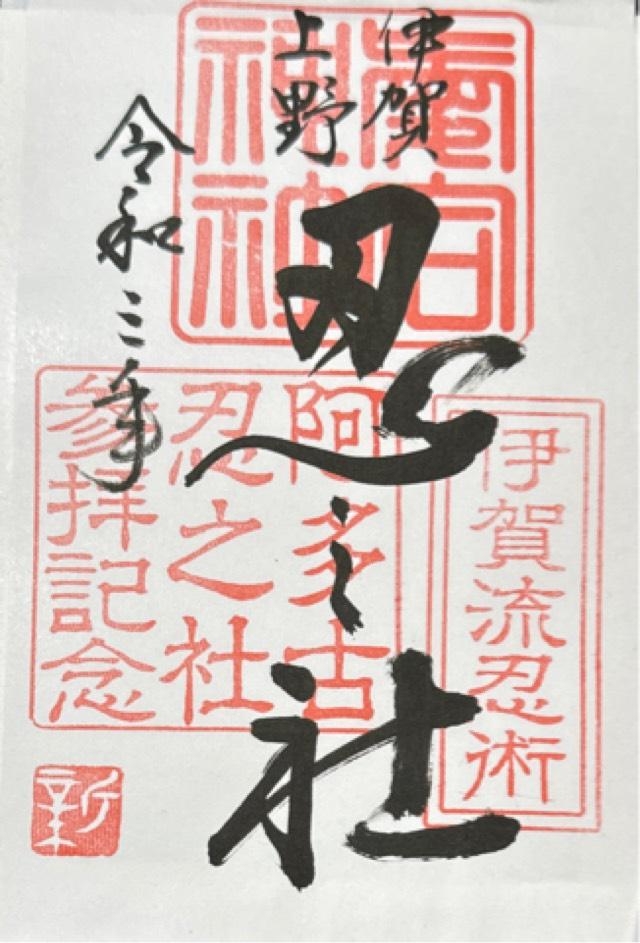 伊賀
上野
忍之社
令和三年
伊賀流忍術
阿多古
忍之社
參拝記念